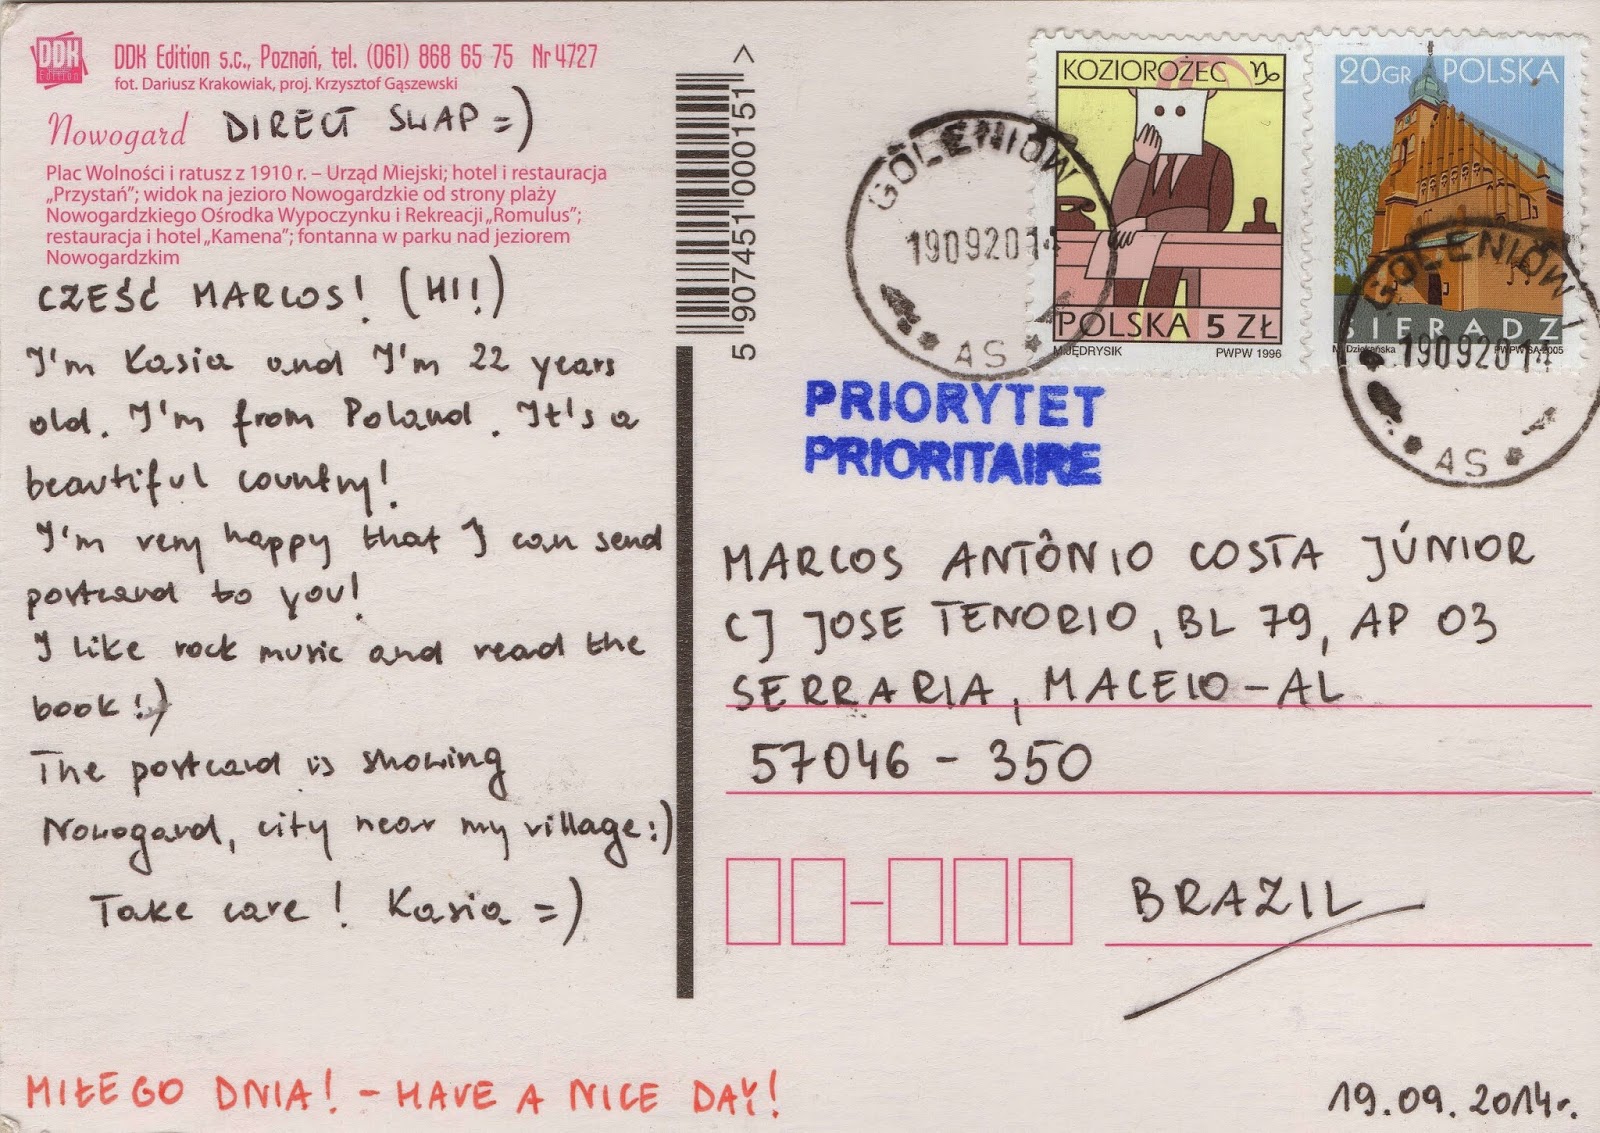 DDK Edition
DDK Edition s.c., Poznań, tel. (061) 868 65 75 Nr 4727
fot. Dariusz Krakowiak, proj. Krzysztof Gąszewski
Nowogard DIRECT SWAP =)
Plac Wolności i ratusz z 1910 r. – Urząd Miejski; hotel i restauracja
„Przystań”; widok na jezioro Nowogardzkie od strony plaży
Nowogardzkiego Ośrodka Wypoczynku i Rekreacji „Romulus”;
restauracja i hotel „Kamena”; fontanna w parku nad jeziorem
Nowogardzkim
CZEŚĆ MARCOS! (HI!)
I'm Kasia and I'm 22 years
old. I'm from Poland. It's a
beautiful country!
I'm very happy that I can send
postcard to you!
I like rock music and read the
book!:)
The postcard is showing
Nowogard, city near my village:)
Take care! Kasia =)
MIŁEGO DNIA! - HAVE A NICE DAY!
5 907451 000151 >
KOZIOROŻEC ♑
POLSKA 5 ZŁ
M.JĘDRYSIK PWPW 1996
20GR POLSKA
SIERADZ
M. Dziekańska PWPW SA-2005
GOLENIÓW 1
19092014
AS
GOLENIÓW 1
19092014
AS
PRIORYTET
PRIORITAIRE
MARCOS ANTÔNIO COSTA JÚNIOR
CJ JOSE TENORIO, BL 79, AP 03
SERRARIA, MACEIO-AL
57046 - 350
BRAZIL
19.09.2014r.